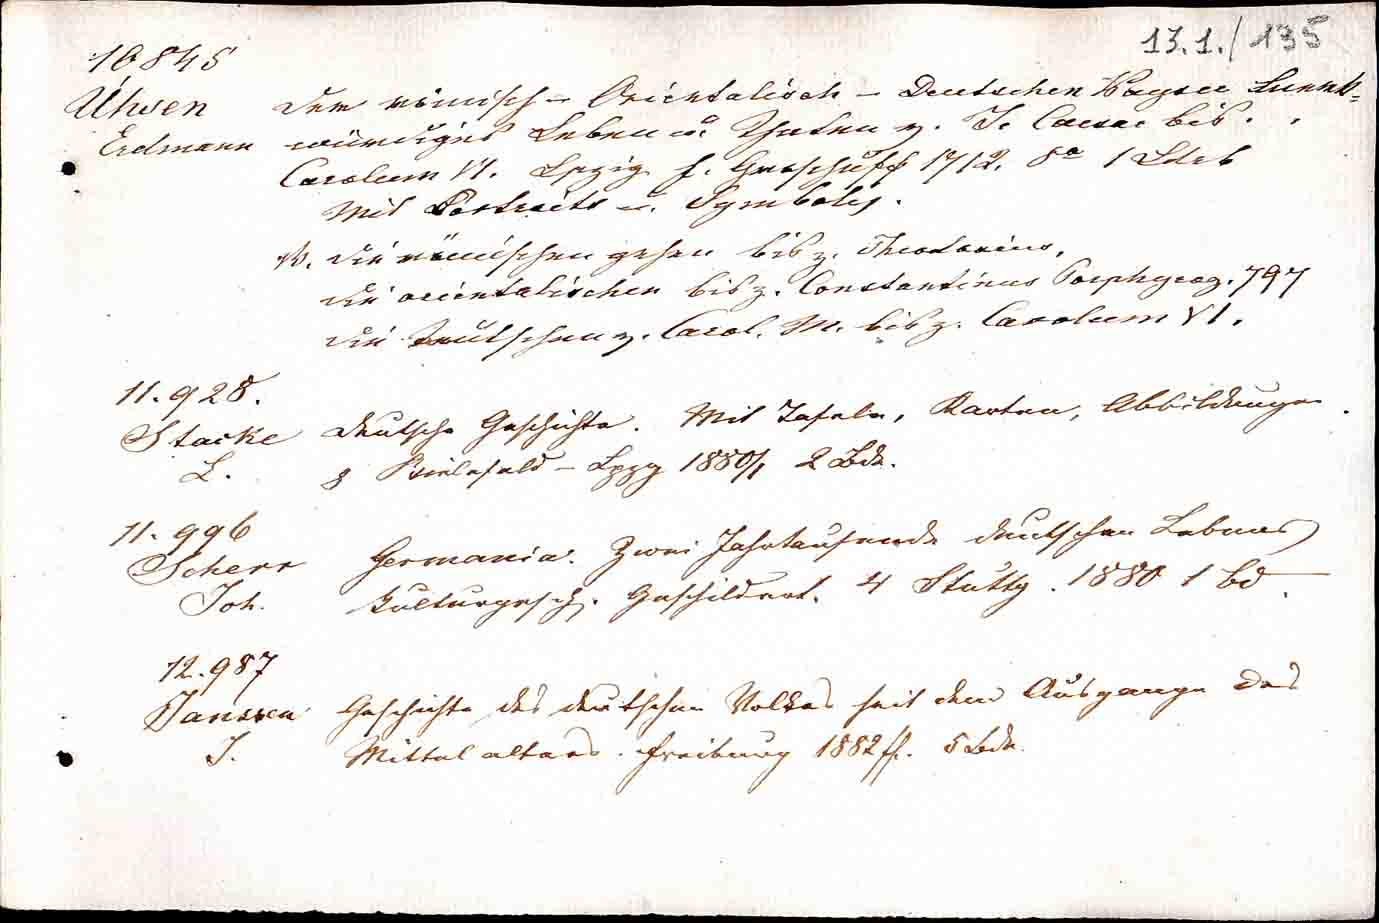 13.1./135
10845
Uhsen Der römisch - Orientalisch - Deutschen Kayser Denk=
Erdmann würdiges Leben u. Thaten v. J. Caesar bis
Carolum VI. Lpzig f. Groschuff 1712. 8° 1 Ldrb
Mit Portraits u. Symbolis.
die römischen gehen bis z. Theodosius,
die orientalischen bis z. Constantinus Porphyrog. 797
die Deutschen v. Carol. M. bis z. Carolum VI.
11.928.
Stacke Deutsche Geschichte. Mit Tafeln, Karten, Abbildungen.
L. 8 Bielefeld - Lpzg 1880/1 2 Bde.
11.996
Scherr Germania. Zwei Jahrtausende deutschen Lebens
Joh. kulturgesch. Geschildert. 4 Stuttg. 1880 1 Bd.
12.987
Janssen Geschichte des deutschen Volkes seit dem Ausgange des
J. Mittelalters. Freiburg 1882 ff. 5 Bde.